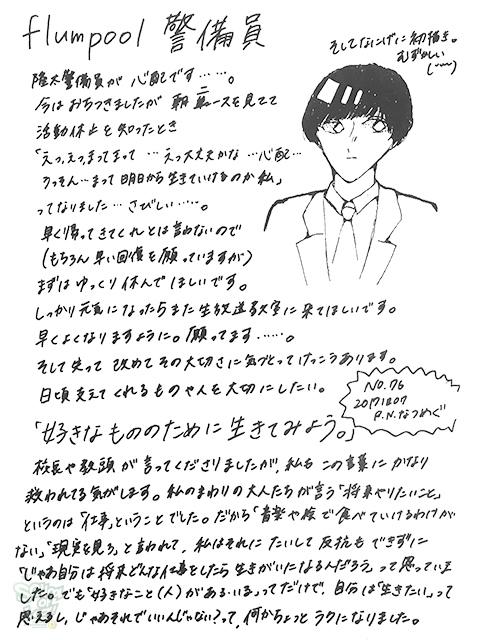 flumpool 警備員
そしてなにげに初描き。
むずかしい
隆太警備員が心配です……。
今はおちつきましたが朝ニュースを見てて
活動休止を知ったとき
「えっえっまってまって …えっ大丈夫かな …心配…
うっそん…まって明日から生きていけるのか私」
ってなりました…さびしい……。
早く帰ってきてくれとは言わないので
(もちろん早い回復を願っていますが)
まずはゆっくり休んでほしいです。
しっかり元気になったらまた生放送教室に来てほしいです。
早くよくなりますように。願ってます……。
そして失って改めてその大切さに気づくってけっこうあります。
日頃支えてくれるものや人を大切にしたい。
NO.76
20171207
P.N.なつめぐ
「好きなもののために生きてみよう。」
校長や教頭が言ってくださりましたが、私もこの言葉にかなり
救われてる気がします。私のまわりの大人たちが言う「将来やりたいこと」
というのは「仕事」ということでした。だから「音楽や絵で食べていけるわけが
ない」「現実を見ろ」と言われて、私はそれにたいして反抗もできずに
「じゃあ自分は将来どんな仕事をしたら生きがいになるんだろう」って思っていま
した。でも「好きなこと(人)がある・いる」ってだけで、自分は「生きたい」って
思えるし、じゃあそれでいいんじゃない?って、何かちょっとラクになりました。